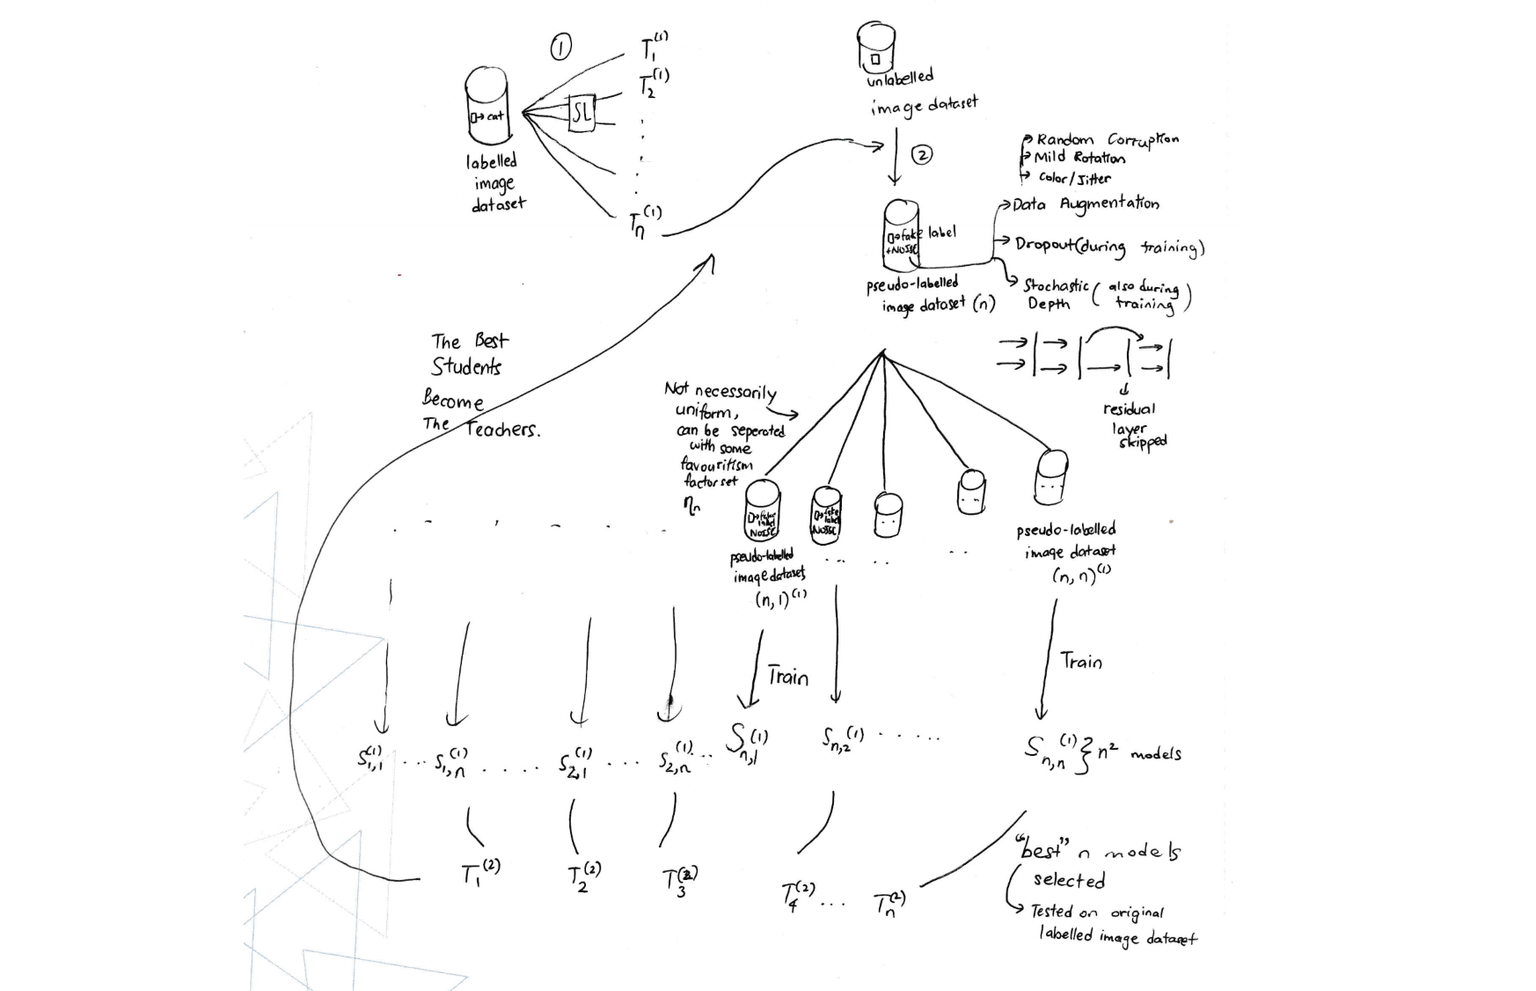 ①
T₁⁽¹⁾
T₂⁽¹⁾
SL
□→ cat
labelled
image
dataset
Tₙ⁽¹⁾
unlabelled
image dataset
②
Random Corruption
Mild Rotation
Color/Jitter
Data Augmentation
Dropout(during training)
Stochastic Depth (also during training)
□→fake label
+NOISE
pseudo-labelled
image dataset (n)
residual
layer
skipped
The Best
Students
Become
The Teachers.
Not necessarily
uniform,
can be seperated
with some
favouritism
factor set
ηₙ
□→fake
label
NOISE
□→fake
label
NOISE
pseudo-labelled
image dataset
(n,1)⁽¹⁾
pseudo-labelled
image dataset
(n,n)⁽¹⁾
Train
Train
S₁,₁⁽¹⁾ ... S₁,ₙ⁽¹⁾ .... S₂,₁⁽¹⁾ ... S₂,ₙ⁽¹⁾ ... Sₙ,₁⁽¹⁾ Sₙ,₂⁽¹⁾ ...... Sₙ,ₙ⁽¹⁾ } n² models
T₁⁽²⁾ T₂⁽²⁾ T₃⁽²⁾ T₄⁽²⁾ ... Tₙ⁽²⁾
"best" n models
selected
Tested on original
labelled image dataset